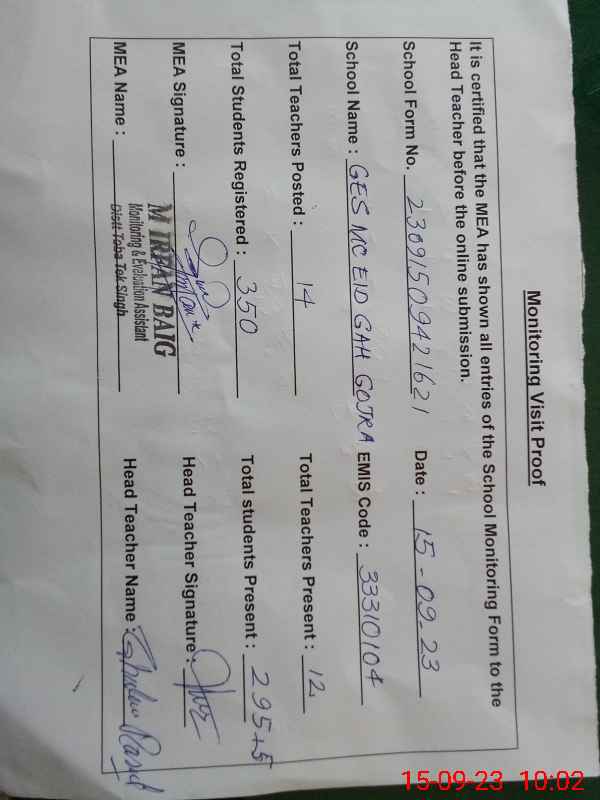 Monitoring Visit Proof
It is certified that the MEA has shown all entries of the School Monitoring Form to the
Head Teacher before the online submission.
School Form No. 23091509421621 Date : 15-09-23
School Name : GES MC EID GAH GOJRA EMIS Code : 33310104
Total Teachers Posted : 14 Total Teachers Present : 12
Total Students Registered : 350 Total students Present : 295+5
MEA Signature : Head Teacher Signature :
MEA Name : M IRFAN BAIG Head Teacher Name :
Monitoring & Evaluation Assistant
Distt Toba Tek Singh
15-09-23 10:02